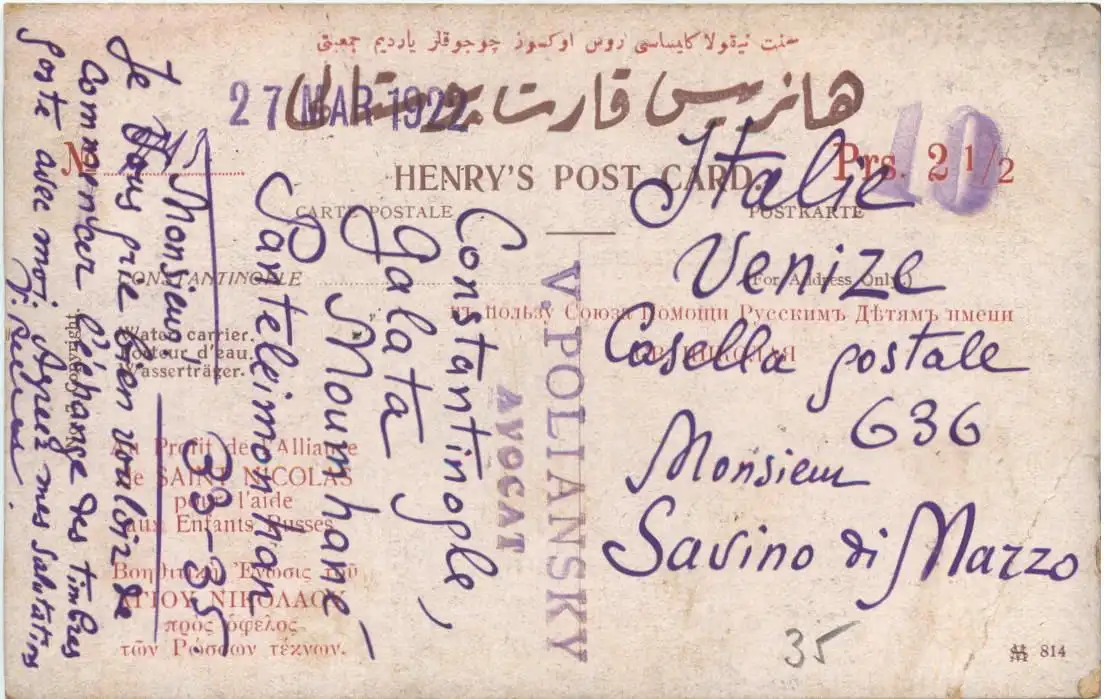 سنت نیقولا کلیساسی روس اوکسوز چوجوقلر یاردیم جمعیتی
هانریس قارت پوستالی
27 MAR 1922
HENRY'S POST CARD.
Prs. 2 1/2
10
No
CARTE POSTALE
POSTKARTE
CONSTANTINOPLE
(For Address Only.)
Water carrier.
Porteur d'eau.
Wasserträger.
Copyright
въ пользу Союза Помощи Русскимъ Дѣтямъ имени
Au Profit de l'Alliance
de SAINT NICOLAS
pour l'aide
aux Enfants Russes
Βοηθητικὴ Ἕνωσις τοῦ
ΑΓΙΟΥ ΝΙΚΟΛΑΟΥ
πρὸς ὄφελος
τῶν Ρώσσων τέκνων.
V. POLIANSKY
AVOCAT
Italie
Venize
Casella postale
636
Monsieur
Savino di Marzo
Constantinople,
Galata
Moumhané
Panteleimon han
33-35.
Monsieur,
Je vous prie bien vouloir de
commencer l'échange des timbres
poste avec moi. Agréez mes salutations
35
814